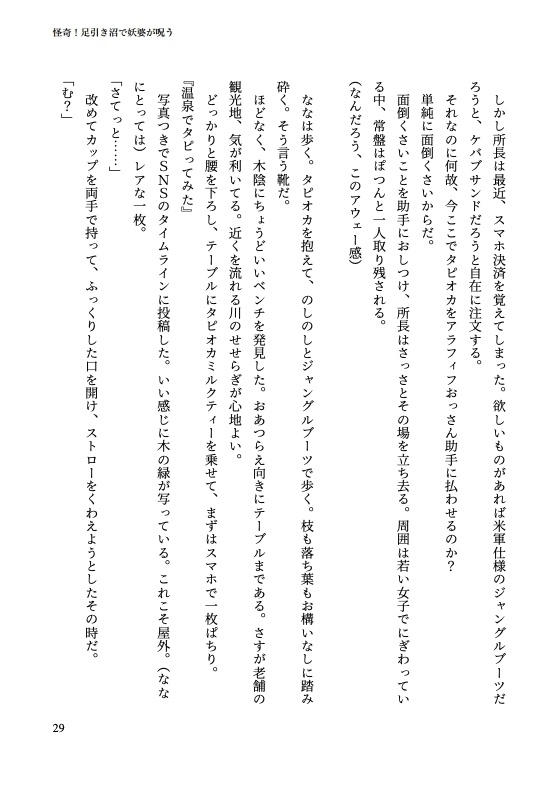 怪奇！足引き沼で妖婆が呪う
　しかし所長は最近、スマホ決済を覚えてしまった。欲しいものがあれば米軍仕様のジャングルブーツだ
ろうと、ケバブサンドだろうと自在に注文する。
　それなのに何故、今ここでタピオカをアラフィフおっさん助手に払わせるのか？
　単純に面倒くさいからだ。
　面倒くさいことを助手におしつけ、所長はさっさとその場を立ち去る。周囲は若い女子でにぎわってい
る中、常盤はぽつんと一人取り残される。
（なんだろう、このアウェー感）
　ななは歩く。タピオカを抱えて、のしのしとジャングルブーツで歩く。枝も落ち葉もお構いなしに踏み
砕く。そう言う靴だ。
　ほどなく、木陰にちょうどいいベンチを発見した。おあつらえ向きにテーブルまである。さすが老舗の
観光地、気が利いてる。近くを流れる川のせせらぎが心地よい。
　どっかりと腰を下ろし、テーブルにタピオカミルクティーを乗せて、まずはスマホで一枚ぱちり。
『温泉でタピってみた』
　写真つきでＳＮＳのタイムラインに投稿した。いい感じに木の緑が写っている。これこそ屋外。（なな
にとっては）レアな一枚。
「さてっと……」
　改めてカップを両手で持って、ふっくりした口を開け、ストローをくわえようとしたその時だ。
「む？」
29